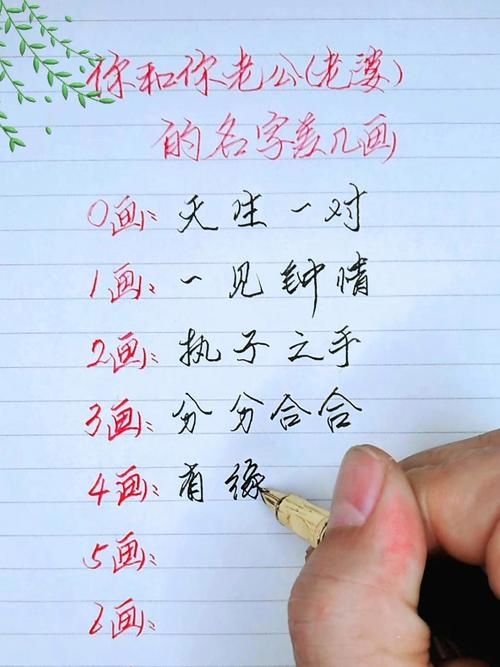 你和你老公(老婆)
的名字差几画
0画:天生一对
1画:一见钟情
2画:执子之手
3画:分分合合
4画:有缘
5画:
6画: